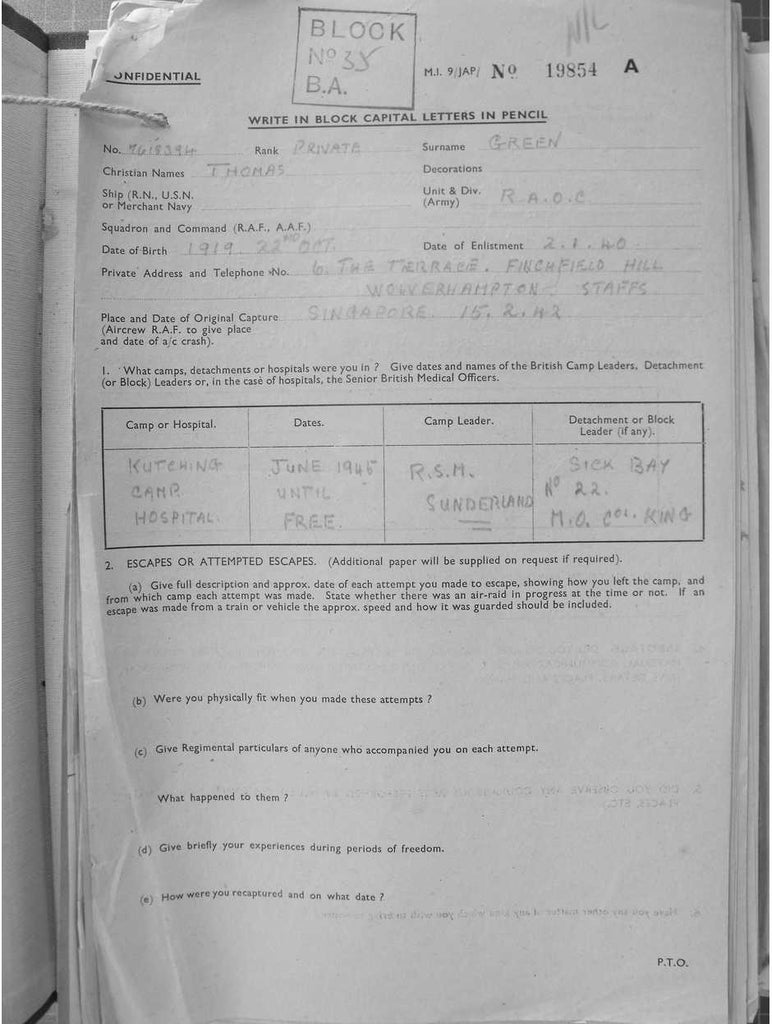 BLOCK
Nº 35
B.A.
NIL
ONFIDENTIAL
M.I. 9/JAP/ Nº 19854 A
WRITE IN BLOCK CAPITAL LETTERS IN PENCIL
No. 7618394 Rank PRIVATE Surname GREEN
Christian Names THOMAS Decorations
Ship (R.N., U.S.N. or Merchant Navy Unit & Div. (Army) R.A.O.C
Squadron and Command (R.A.F., A.A.F.)
Date of Birth 1919. 22ND OCT. Date of Enlistment 2.1.40.
Private Address and Telephone No. 6. THE TERRACE. FINCHFIELD HILL
WOLVERHAMPTON STAFFS
Place and Date of Original Capture SINGAPORE. 15.2.42
(Aircrew R.A.F. to give place
and date of a/c crash).
1. What camps, detachments or hospitals were you in ? Give dates and names of the British Camp Leaders, Detachment
(or Block) Leaders or, in the case of hospitals, the Senior British Medical Officers.
Camp or Hospital. Dates. Camp Leader. Detachment or Block Leader (if any).
KUTCHING JUNE 1945 R.S.M. SICK BAY
CAMP UNTIL SUNDERLAND Nº 22.
HOSPITAL. FREE. M.O. COL. KING
2. ESCAPES OR ATTEMPTED ESCAPES. (Additional paper will be supplied on request if required).
(a) Give full description and approx. date of each attempt you made to escape, showing how you left the camp, and
from which camp each attempt was made. State whether there was an air-raid in progress at the time or not. If an
escape was made from a train or vehicle the approx. speed and how it was guarded should be included.
(b) Were you physically fit when you made these attempts ?
(c) Give Regimental particulars of anyone who accompanied you on each attempt.
What happened to them ?
(d) Give briefly your experiences during periods of freedom.
(e) How were you recaptured and on what date ?
P.T.O.